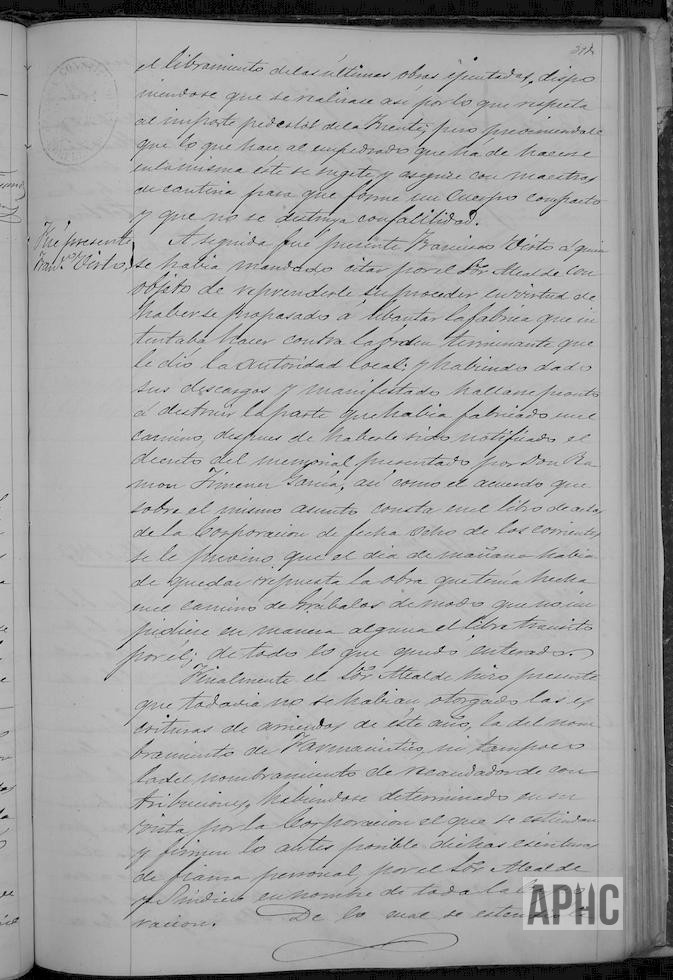 el libramiento de las últimas obras ejecutadas, dispo
niendose que se realizase así por lo que respecta
al importe pedestal de la Fuente; pero previniendole
que lo que hace al empedrado que ha de hacerse
en la misma éste se sugete y asegure con maestras
de cantina para que forme un Cuerpo compacto
y que no se destruya con facilidad.
Fué presente
Fran.co Visto
A seguida fué presente Francisco Visto á quien
se habia mandado citar por el Sor Alcalde con
objeto de reprenderle su proceder en virtud de
haberse propasado á levantar la fábrica que in
tentaba hacer contra la orden terminante que
le dió la autoridad local: y habiendo dado
sus descargos y manifestado hallarse pronto
á destruir la parte que habia fabricado en el
camino, despues de haberle sido notificado el
decreto del memorial presentado por Don Ra
mon Ximenez Garcia, así como el acuerdo que
sobre el mismo asunto consta en el libro de actas
de la Corporacion de fecha Ocho de los corrientes
se le previno que el dia de mañana habia
de quedar repuesta la obra que tenia hecha
en el camino de Arábalos de modo que no im
pidiese en manera alguna el libre transito
por él; de todo lo que quedó enterado.
Finalmente el Sor Alcalde hizo presente
que todavia no se habian otorgado las es
crituras de arriendos de este año, la del nom
bramiento de Farmacéutico, ni tampoco
la del nombramiento de recaudador de con
tribuciones, habiendose determinado en su
vista por la Corporacion el que se estiendan
y firmen lo antes posible dichas escrituras
de fianza personal, por el Sor Alcalde
y Sindico en nombre de toda la
racion. De lo cual se estendió la
APHC